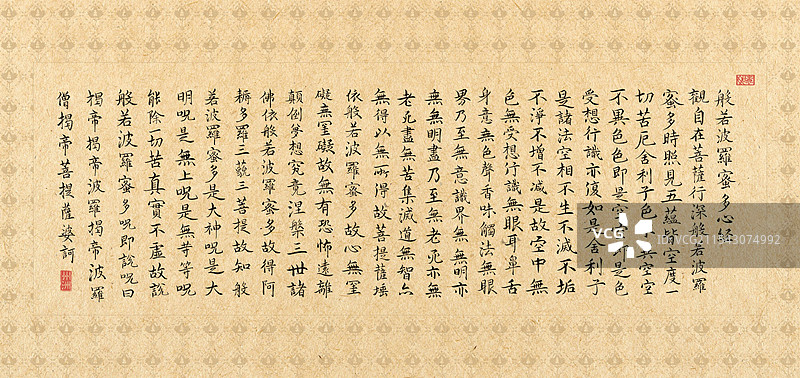 般若波羅蜜多心經
觀自在菩薩行深般若波羅
蜜多時照見五蘊皆空度一
切苦厄舍利子色不異空空
不異色色即是空是色
受想行識亦復如是舍利子
是諸法空相不生不滅不垢
不淨不增不減是故空中無
色無受想行識無眼耳鼻舌
身意無色聲香味觸法無眼
界乃至無意識界無無明亦
無無明盡乃至無老死亦無
老死盡無苦集滅道無智亦
無得以無所得故菩提薩埵
依般若波羅蜜多故心無罣
礙無罣礙故無有恐怖遠離
顛倒夢想究竟涅槃三世諸
佛依般若波羅蜜多故得阿
耨多羅三藐三菩提故知般
若波羅蜜多是大神呪是大
明呪是無上呪是無等等呪
能除一切苦真實不虛故說
般若波羅蜜多呪即說呪曰
揭帝揭帝波羅揭帝波羅
僧揭帝菩提薩婆訶